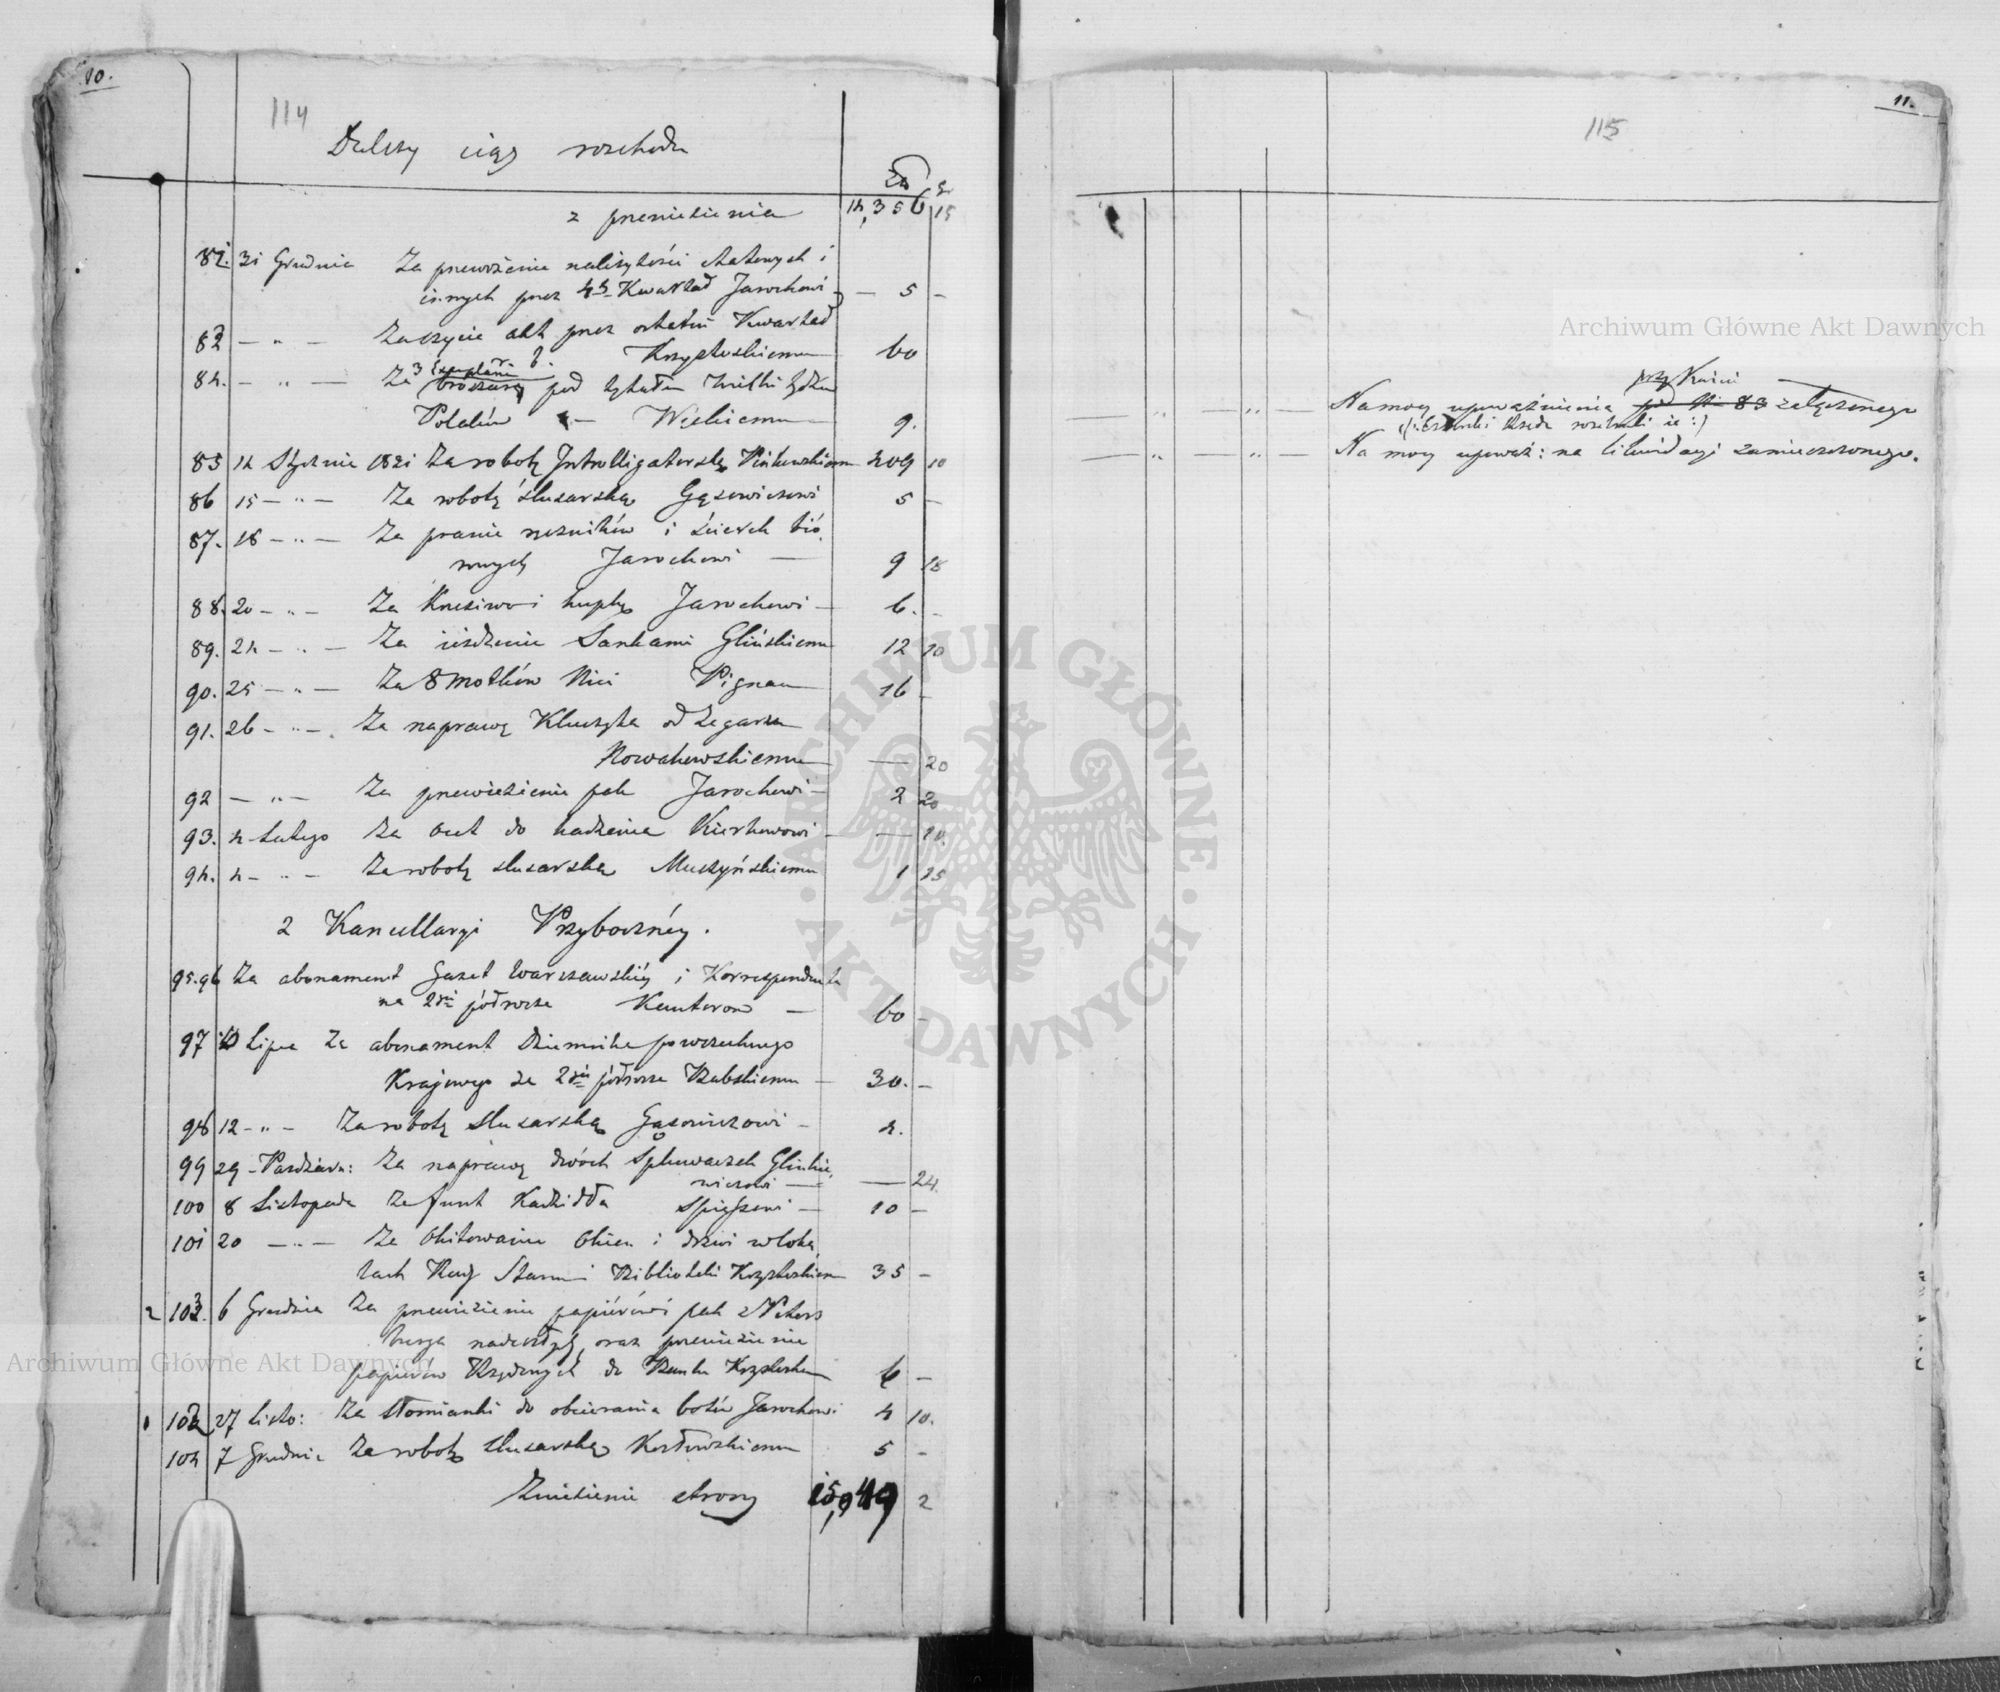 10.
114
Dalszy ciąg rozchodu
Zł gr
z przeniesienia 14,356 15
82. 31 Grudnia Za przewożenie należytości etatowych i
innych przez 4ty Kwartał Jarochowi — 5 —
83 — " — Za szycie akt przez ostatni Kwartał
Krzysztoskiemu 60
84. — " — Za 3 Exemplarze
pod tytułem
Polaków — Wickiemu 9.
85 14 Stycznia 1831 Za robotę Introlligatorską 409 10
86 15 — " — Za robotę ślusarską Gąsowiczowi 5 —
87. 18 — " — Za pranie ręczników i ścierek bió
rowych Jarochowi — 9 18
88. 20 — " — Za Krzesiwo i hupkę Jarochowi — 6. —
89. 24 — " — Za jeżdżenie Sankami Glińskiemu 12 10
90. 25 — " — Za 8 motków Nici Pignau 16 —
91. 26 — " — Za naprawę Kluczyka od Zegarka
Nowakowskiemu — 20
92 — " — Za przewiezienie pak Jarochowi — 2 20
93. 4 Lutego Za ocet do kadzenia — — 10.
94. 4 — " — Za robotę ślusarską Muszyńskiemu 1 15
2 Kancellaryi Przybocznéy.
95.96 Za abonament Gazet Warszawskiéy i Korrespondenta
na 2gie półrocze Kantorow — 60 —
97 10 Lipca Za abonament Dziennika powszechnego
Krajowego za 2gie półrocze Babskiemu — 30. —
98 12 — " — Za robotę ślusarską Gąsowiczowi — 4.
99 29 — Paździer: Za naprawę dwóch Spluwaczek Glinkie
wiczowi — — 24.
100 8 Listopada Za funt Kadzidła Spieszowi — 10 —
101 20 — " — Za Okitowanie Okien i drzwi w loka
lach Rady Stanu i Biblioteki Krzysztoskiemu 35 —
2 103. 6 Grudnia Za przewiezienie papiérów i pak z Peters
burga nadeszłych, oraz przewiezienie
papierów Rządowych do Banku 6 —
1 102 27 Listo: Za Słomianki do obcierania botów Jarochowi 4 10.
104 7 Grudnia Za robotę ślusarską Kozłowskiemu 5 —
Zniesienie strony 15,049 2
11.
115
przy Kwicie
— " — " — Na mocy upoważnienia pod N 83 załączonego
— " — " — Na mocy upoważ: na likwidacyi zamieszczonego.
Archiwum Główne Akt Dawnych
Archiwum Główne Akt Dawnych
ARCHIWUM GŁÓWNE · AKT DAWNYCH ·